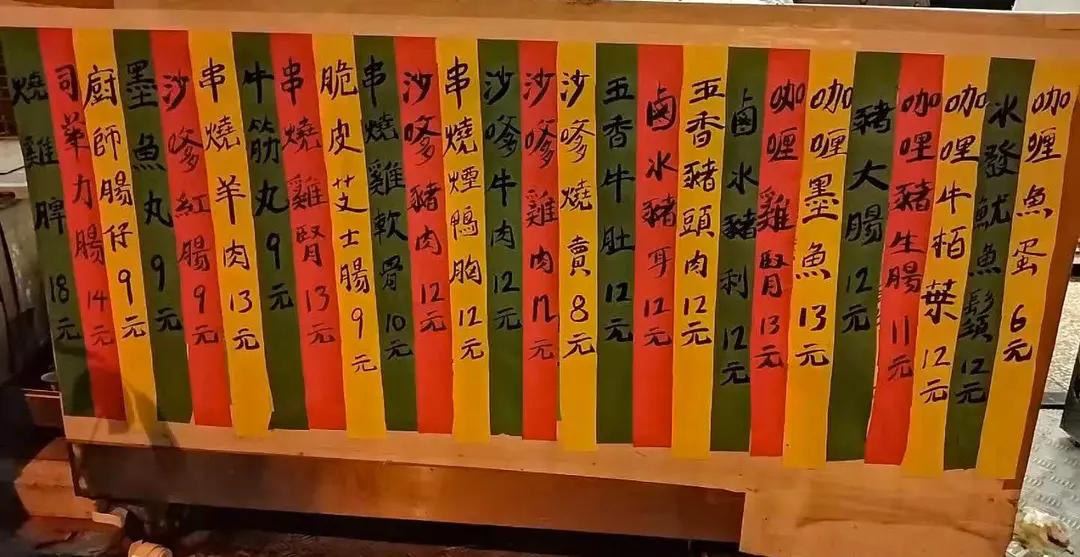 咖喱魚蛋6元
水發魷魚鬚12元
咖哩牛栢葉12元
咖哩豬生腸11元
豬大腸12元
咖喱墨魚13元
咖喱雞腎13元
鹵水豬利12元
五香豬頭肉12元
鹵水豬耳12元
五香牛肚12元
沙嗲燒賣8元
沙嗲雞肉12元
沙嗲牛肉12元
串燒煙鴨胸12元
沙嗲豬肉12元
串燒雞軟骨10元
脆皮芝士腸9元
串燒雞腎13元
牛筋丸9元
串燒羊肉13元
沙嗲紅腸9元
墨魚丸9元
廚師腸仔9元
司華力腸14元
燒雞脾18元